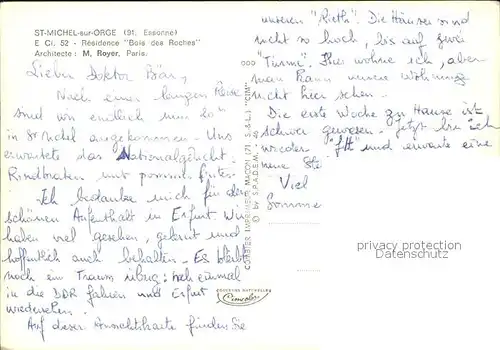 ST-MICHEL-sur-ORGE (91. Essonne)
E Ci. 52 - Résidence "Bois des Roches"
Architecte : M. Royer, Paris.
Lieber Doktor Bär,
Nach einer langen Reise
sind wir endlich um 20 h
in St Michel angekommen. Uns
erwartete das Nationalgericht:
Rindbraten und pommes frites.
Ich bedanke mich für den
schönen Aufenthalt in Erfurt. Wir
haben viel gesehen, gelernt und
hoffentlich auch behalten. Es bleibt
noch ein Traum übrig: noch einmal
in die DDR fahren und Erfurt
wiedersehen.
Auf dieser Ansichtskarte finden Sie
unseren "Rieth". Die Häuser sind
nicht so hoch, bis auf zwei
"Türme". Hier wohne ich, aber
man kann unsere Wohnung
nicht hier sehen.
Die erste Woche zu Hause ist
schwer gewesen. Jetzt bin ich
wieder und erwarte eine
neue
Viel
Sonne
COMBIER IMPRIMEUR MACON (71 S.-&-L.) "CIM"
© by S.P.A.D.E.M.
privacy protection
oldthing.de
Cimcolor